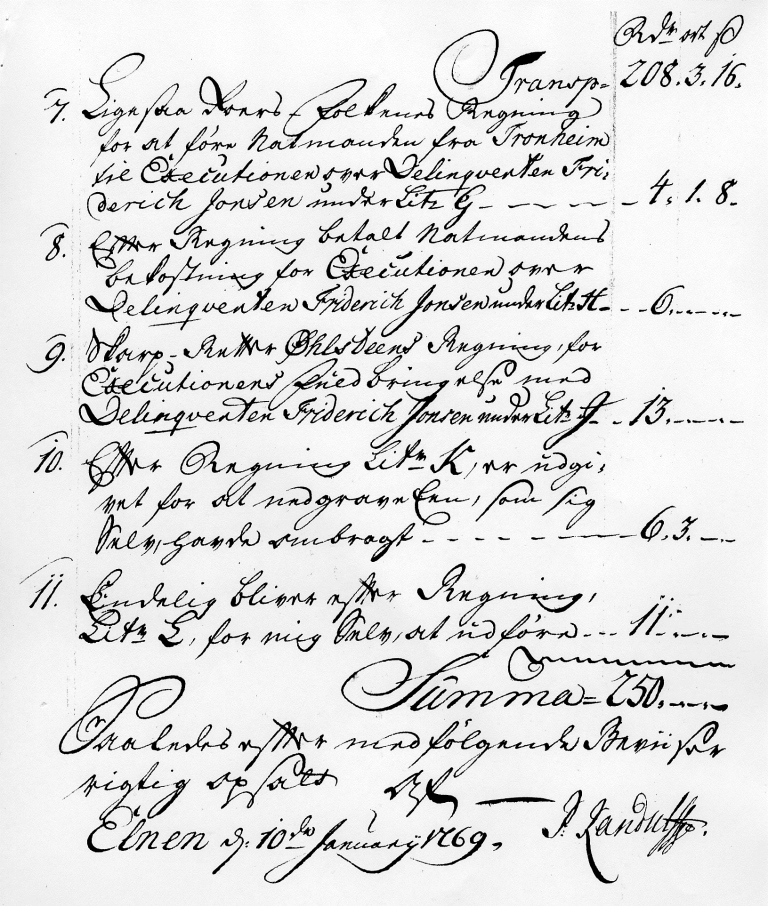 Rdr ort ß
Transp= 208. 3. 16.
7. Ligesaa Roers-folkenes Regning
for at føre Natmanden fra Tronheim
til Executionen over Delinqventen Fri:
derich Jonsen under Litr G - - - - - 4. 1. 8.
8. Efter Regning betalt Natmandens
bekostning for Executionen over
Delinqventen Friderich Jonsen under Litr H - - 6. - - -
9. Skarp-Retter Øhlsteens Regning, for
Executionens fuldbringelse med
Delinqventen Friderich Jonsen under Litr J - - 13. - - -
10. Efter Regning Litr K, er udgi:
vet for at nedgrave Een, som sig
Selv, havde ombragt - - - - - 6. 3. - -
11. Endelig bliver efter Regning,
Litr L, for mig Selv, at udføre - - - 11. - - -
Summa = 250. - - -
Saaledes efter medfølgende Beviiser
rigtig opsatt Af
Elnen d: 10de January 1769. P. Randulff.